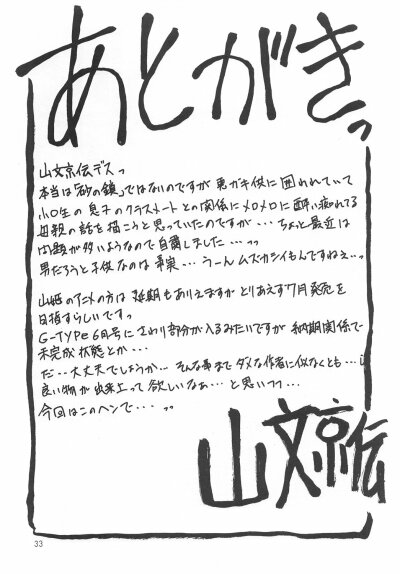 あとがきっ
山文京伝デスっ
本当は「砂の鎖」ではないのですが 悪ガキ供に囲われていて
小○生の息子のクラスメートとの関係にメロメロに酔い痴れる
母親の話を描こうと思っていたのですが・・・ちょっと最近は
問題が多いようなので自粛しました・・・っっ
男だろうと子供なのは事実・・・うーん ムズカシイもんですねぇ・・っ
山姫のアニメの方は 延期もありえますが とりあえず7月発売を
目指すらしいです。
G-TYPE 6月号に さわり部分が入るみたいですが 納期関係で
未完成状態とか・・・
だ・・大丈夫でしょうか・・・ そんな事まで ダメな作者に似なくとも・・・
良い物が 出来上って 欲しいなぁ・・・と思いつつ・・・
今回はこのヘンで・・・っっ
山文京伝
33